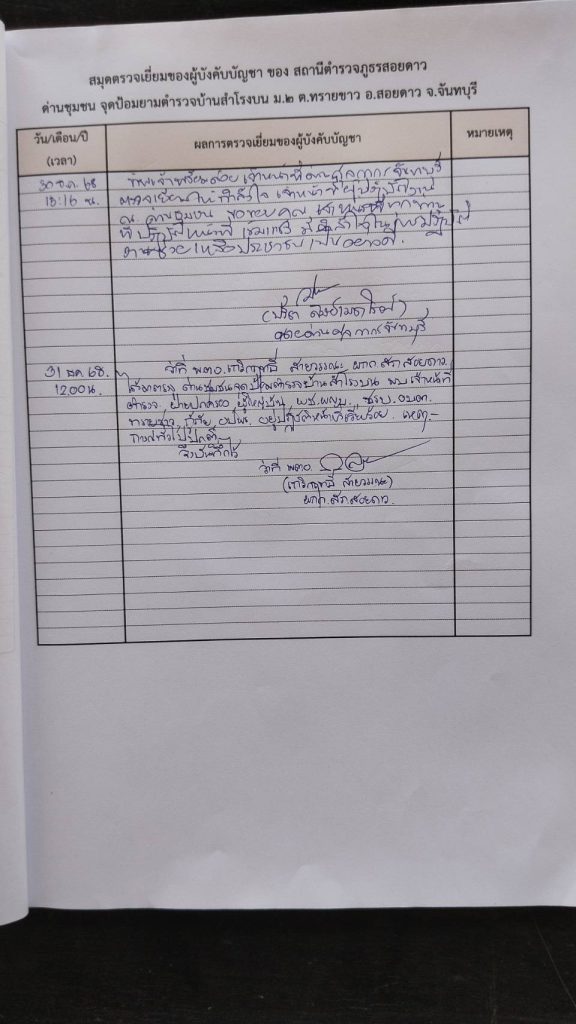 สมุดตรวจเยี่ยมของผู้บังคับบัญชา ของ สถานีตำรวจภูธรสอยดาว
ด่านชุมชน จุดป้อมยามตำรวจบ้านสำโรงบน ม.๒ ต.ทรายขาว อ.สอยดาว จ.จันทบุรี
วัน/เดือน/ปี
(เวลา)
ผลการตรวจเยี่ยมของผู้บังคับบัญชา
หมายเหตุ
30 ธ.ค. 68
13:16 น.
ข้าพเจ้าพร้อมด้วย เจ้าหน้าที่ด่านศุลกากรจันทบุรี
ตรวจเยี่ยมให้กำลังใจ เจ้าหน้าที่ผู้ปฏิบัติงาน
ณ ด่านชุมชน ขอขอบคุณ เจ้าหน้าที่ทุกท่าน
ที่ปฏิบัติหน้าที่
งานช่วยเหลือประชาชนเป็นอย่างดี
นายด่านศุลกากรจันทบุรี
31 ธค 68.
12.00 น.
ว่าที่ พ.ต.อ. สายวรรณะ ผกก.สภ.สอยดาว
ได้มาตรวจ ด่านชุมชนจุดป้อมตำรวจบ้านสำโรงบน พบเจ้าหน้าที่
ตำรวจ ฝ่ายปกครอง ผู้ใหญ่บ้าน, ชรบ. อบต.
ทรายขาว, กู้ภัย อปพร. อยู่ปฏิบัติหน้าที่เรียบร้อย เหตุ-
การณ์ทั่วไปปกติ
จึงบันทึกไว้
ว่าที่ พ.ต.อ.
ผกก.สภ.สอยดาว.